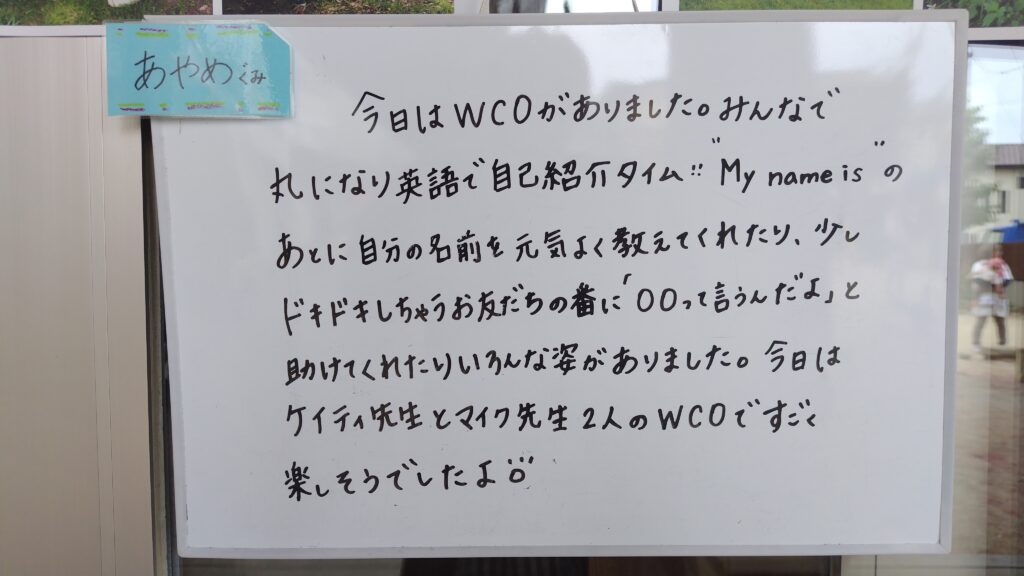 あやめぐみ
今日はWCOがありました。みんなで
丸になり英語で自己紹介タイム!! "My name is" の
あとに自分の名前を元気よく教えてくれたり、少し
ドキドキしちゃうお友だちの番に「〇〇って言うんだよ」と
助けてくれたりいろんな姿がありました。今日は
ケイティ先生とマイク先生2人のWCOですごく
楽しそうでしたよ